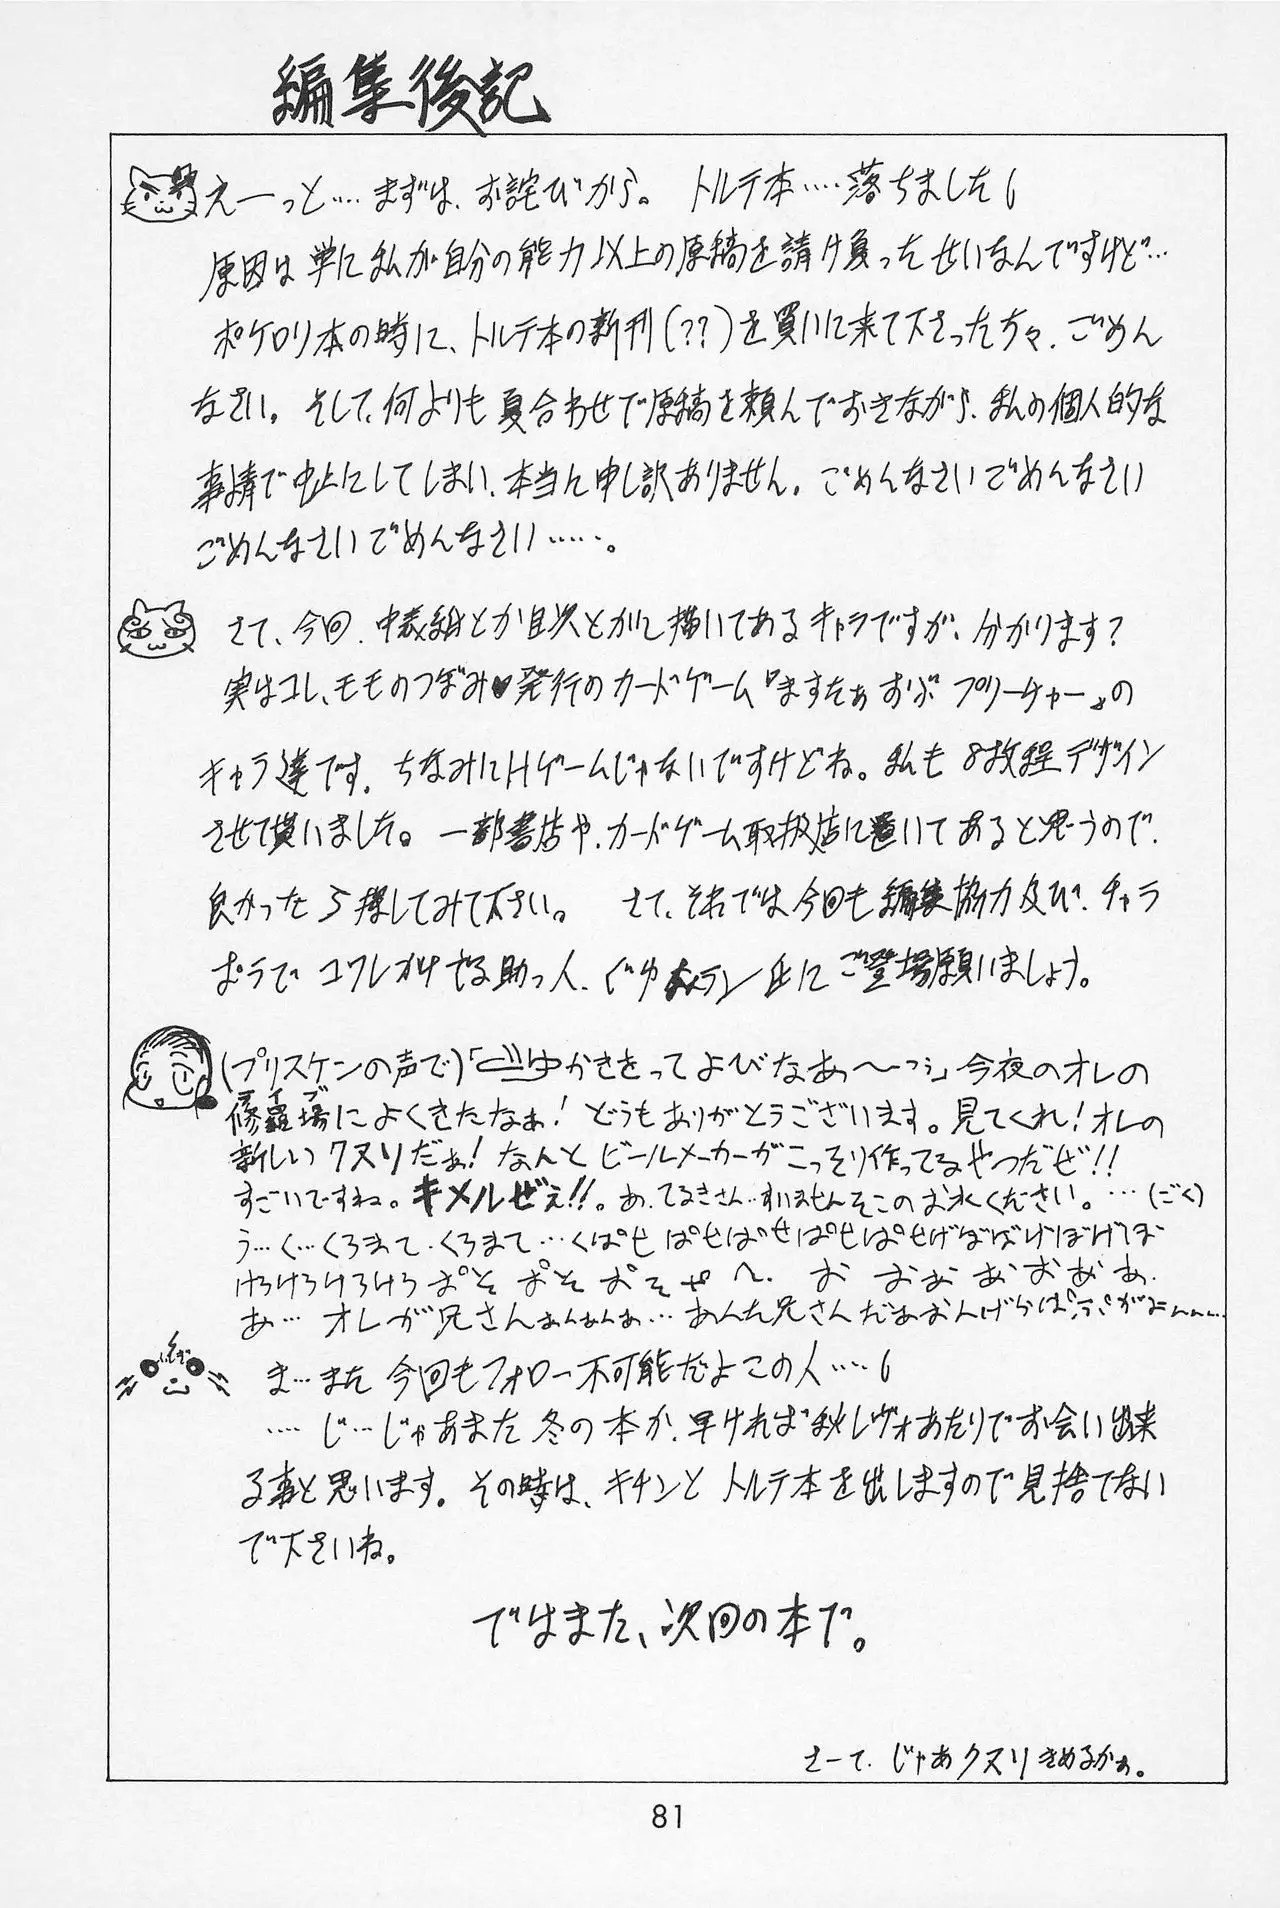 編集後記
えーっと…まずは、お詫びから。 トルテ本……落ちました
原因は単に私が自分の能力以上の原稿を請け負ったせいなんですけど…
ポケロリ本の時に、トルテ本の新刊(??)を買いに来て下さった方々、ごめん
なさい。そして、何よりも夏合わせで原稿を頼んでおきながら、私の個人的な
事情で中止にしてしまい、本当に申し訳ありません。ごめんなさいごめんなさい
ごめんなさいごめんなさい……。
さて、今回、中表紙とか目次とかに描いてあるキャラですが、分かります?
実はコレ、モモのつぼみ♥発行のカードゲーム『ますたぁおぶプリーチャー』の
キャラ達です。ちなみにHゲームじゃないですけどね。私も8枚程デザイン
させて貰いました。一部書店や、カードゲーム取扱店に置いてあると思うので、
良かったら探してみて下さい。 さて、それでは今回も編集協力及び、チャラ
氏にご登場願いましょう。
(プリスケンの声で)
今夜のオレの
修羅場
ライブ
によくきたなぁ! どうもありがとうございます。見てくれ!オレの
新しいクヌリだぁ! なんとビールメーカーがこっそり作ってるやつだぜ!!
すごいですね。キメルぜぇ!!。あ、てるきさん…すいませんそこのお水ください。…(ごく)
う…く…くろまて、くろまて…くぱせ
けろけろけろけろ
あ…オレが兄さん
ま…また今回もフォロー不可能だよこの人……
……じ…じゃあまた冬の本か、早ければ秋レヴォあたりでお会い出来
る事と思います。その時は、キチンとトルテ本を出しますので見捨てない
で下さいね。
ではまた、次回の本で。
さーて、じゃあクヌリきめるかぁ。
81